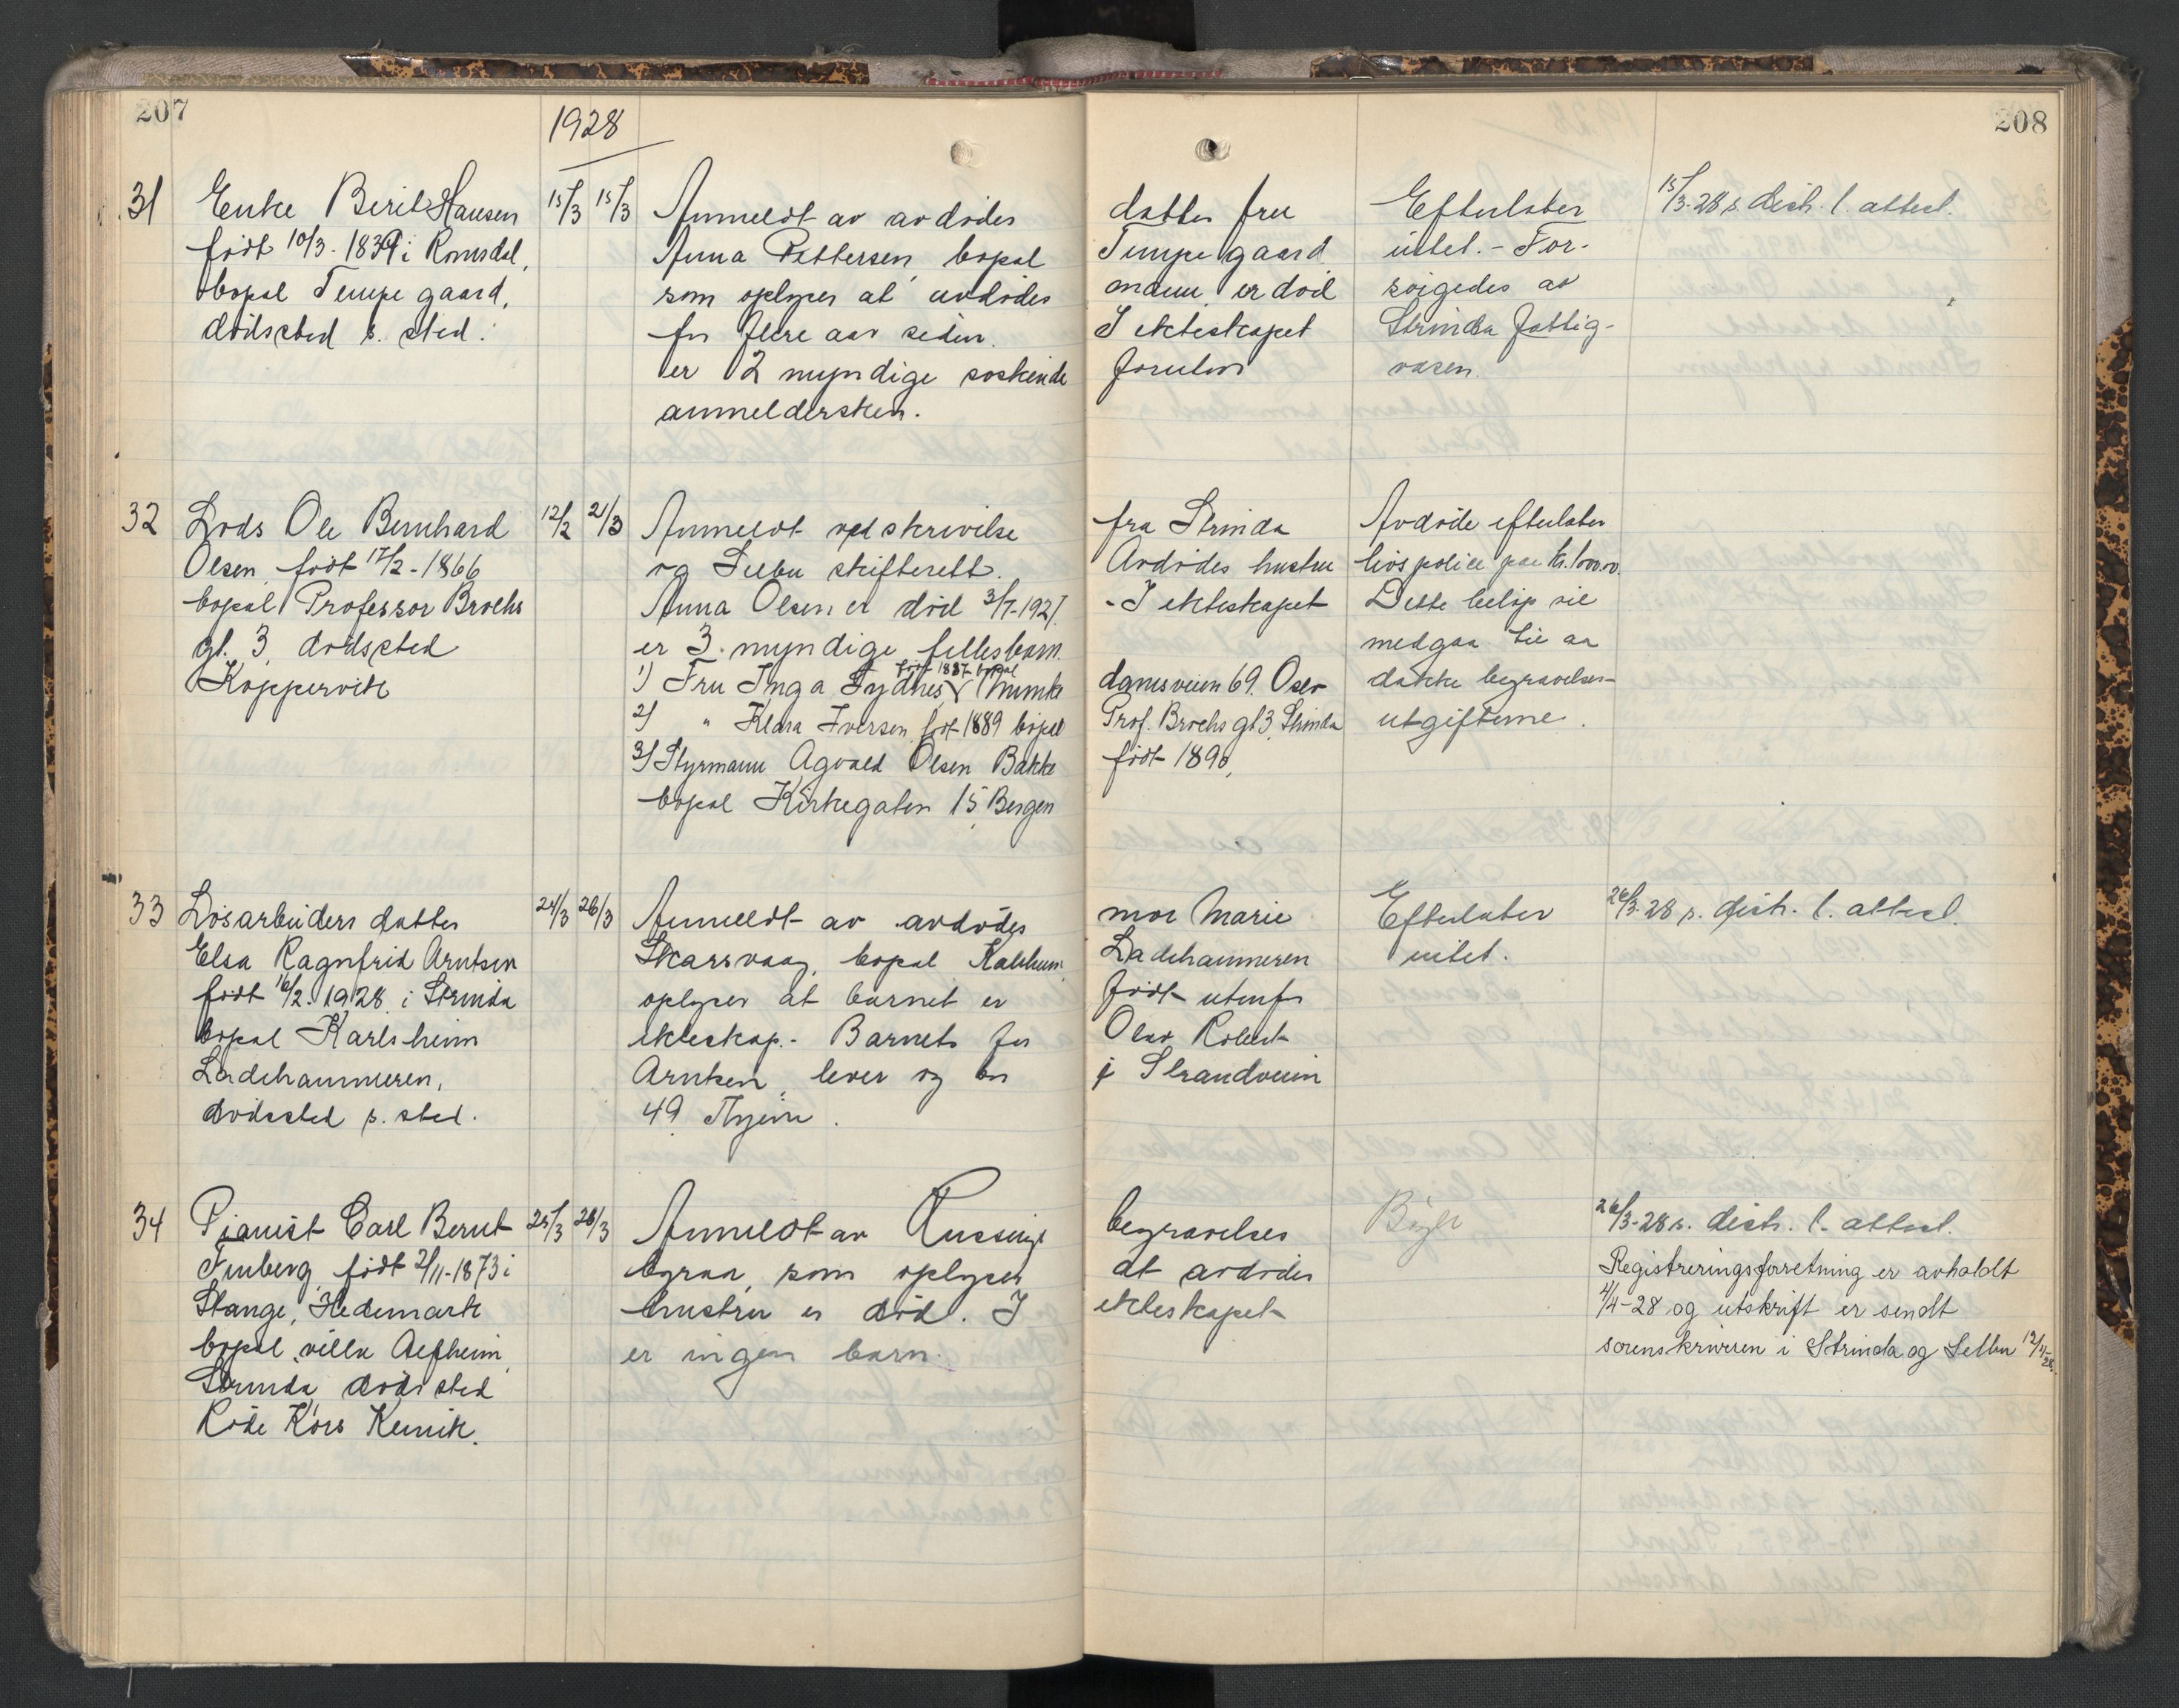 207
1928
208
31 Enke Berit Hansen 15/3 15/3 Anmeldt av avdødes datter fru Efterlater 15/3-28 s. distr. l. attest.
født 10/3-1839 i Romsdal, Anna Pettersen, bopæl Tempe gaard intet. - For-
bopæl Tempe gaard, som oplyser at avdødes mann er død sørgedes av
dødssted s. sted. for flere aar siden. I ekteskapet Strinda fattig-
er 2 myndige søskende foruten væsen.
anmeldersken.
32 Lods Ole Bernhard 12/2 21/3 Anmeldt ved skrivelse fra Strinda Avdøde efterlater
Olsen, født 17/2-1866 og Selbu skifterett. Avdødes hustru livspolice paa kr. 1000.00.
bopæl Professor Brochs Anna Olsen er død 3/7-1927. - I ekteskapet Dette beløp vil
gt. 3, dødssted er 3 myndige fellesbarn. medgaa til aa
født 1887 bopæl
Koppervik 1) Fru Inga Sydnes, Munke damsveien 69. Oslo dække begravelses-
2) " Klara Iversen født 1889 bopæl Prof. Brochs gt 3, Strinda utgifterne.
3) Styrmann Agvald Olsen Bakke født 1890,
bopæl Kirkegaten 15 Bergen
33 Løsarbeiders datter 24/3 26/3 Anmeldt av avdødes mor Marie Efterlater 26/3-28 s. distr. l. attest.
Elsa Ragnfrid Arntsen Skarsvaag, bopæl Karlsheim Ladehammeren intet.
født 16/2.1928 i Strinda oplyser at barnet er født utenfor
bopæl Karlsheim ekteskap. - Barnets far Olav Robert
Ladehammeren, Arntsen, lever og bor i Strandveien
dødssted s. sted. 49 Thjem.
34 Pianist Carl Bernt 25/3 26/3 Anmeldt av begravelses 26/3-28 s. distr. l. attest.
født 2/11-1873 i byraa, som oplyser at avdødes Registreringsforretning er avholdt
Stange, Hedemark hustru er død. I ekteskapet 4/4-28 og utskrift er sendt
bopæl villa er ingen barn. sorenskriveren i Strinda og Selbu 12/4-28.
Strinda, dødssted
Røde Kors Klinik.